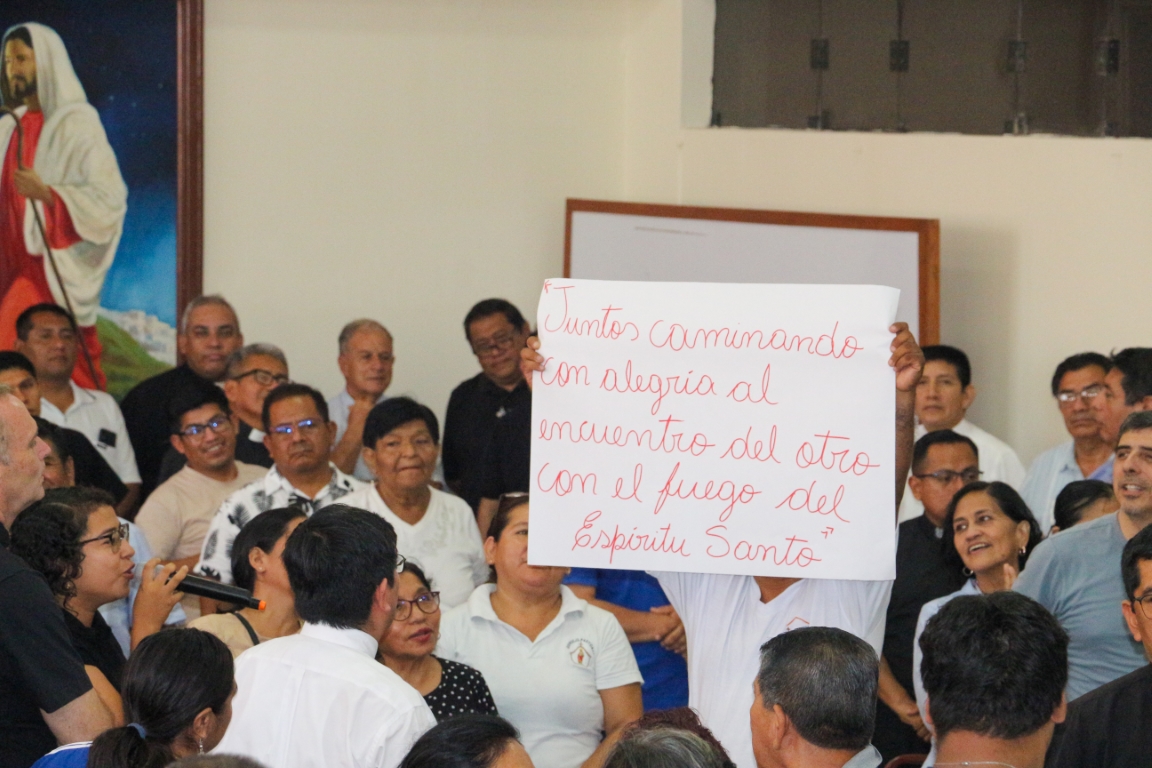 "Juntos caminando
con alegría al
encuentro del otro
con el fuego del
Espíritu Santo"